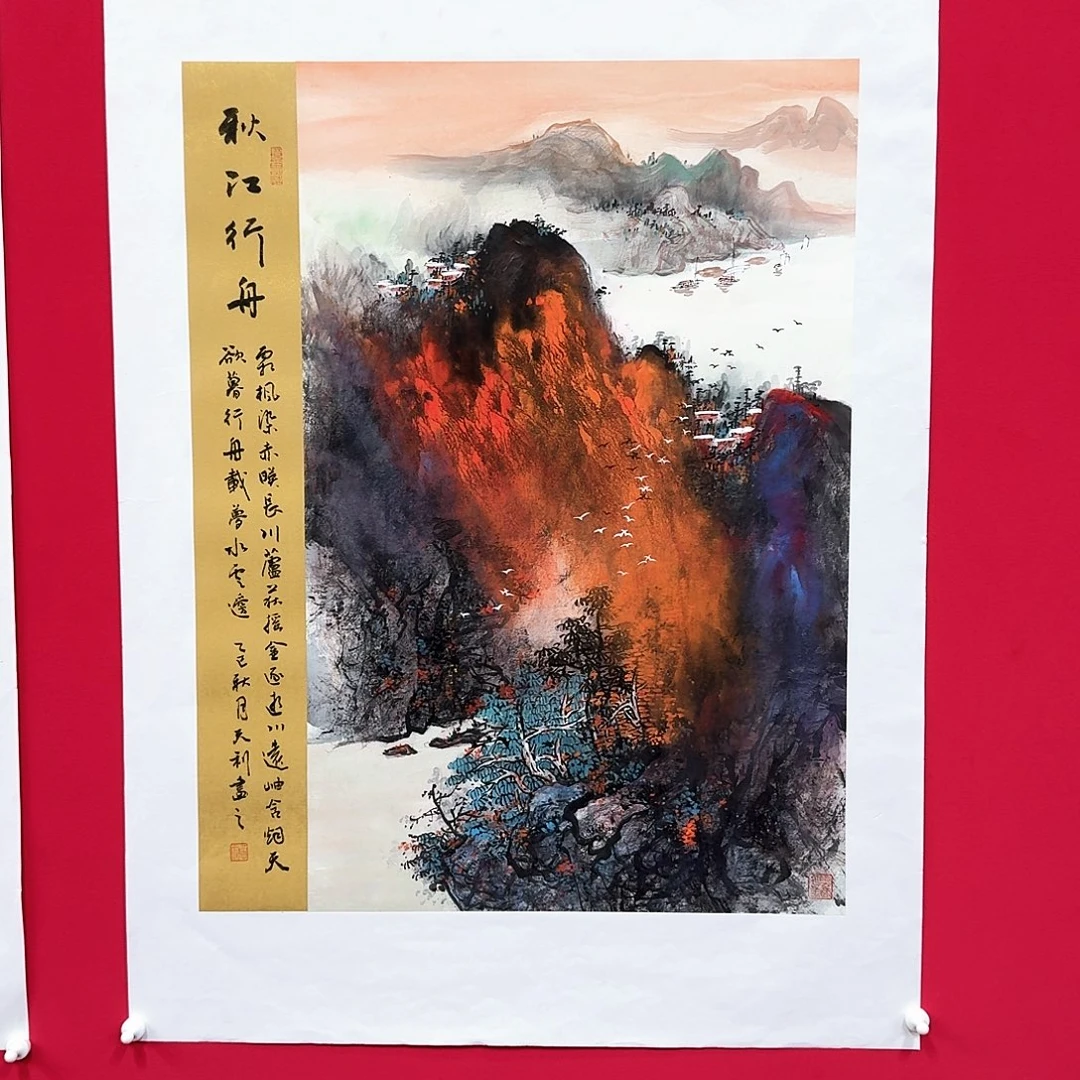 秋江行舟
霜楓染赤暎長川蘆荻摇金逐逝川遠岫含烟天
欲暮行舟載夢水雲邊 乙巳秋月天利畫之